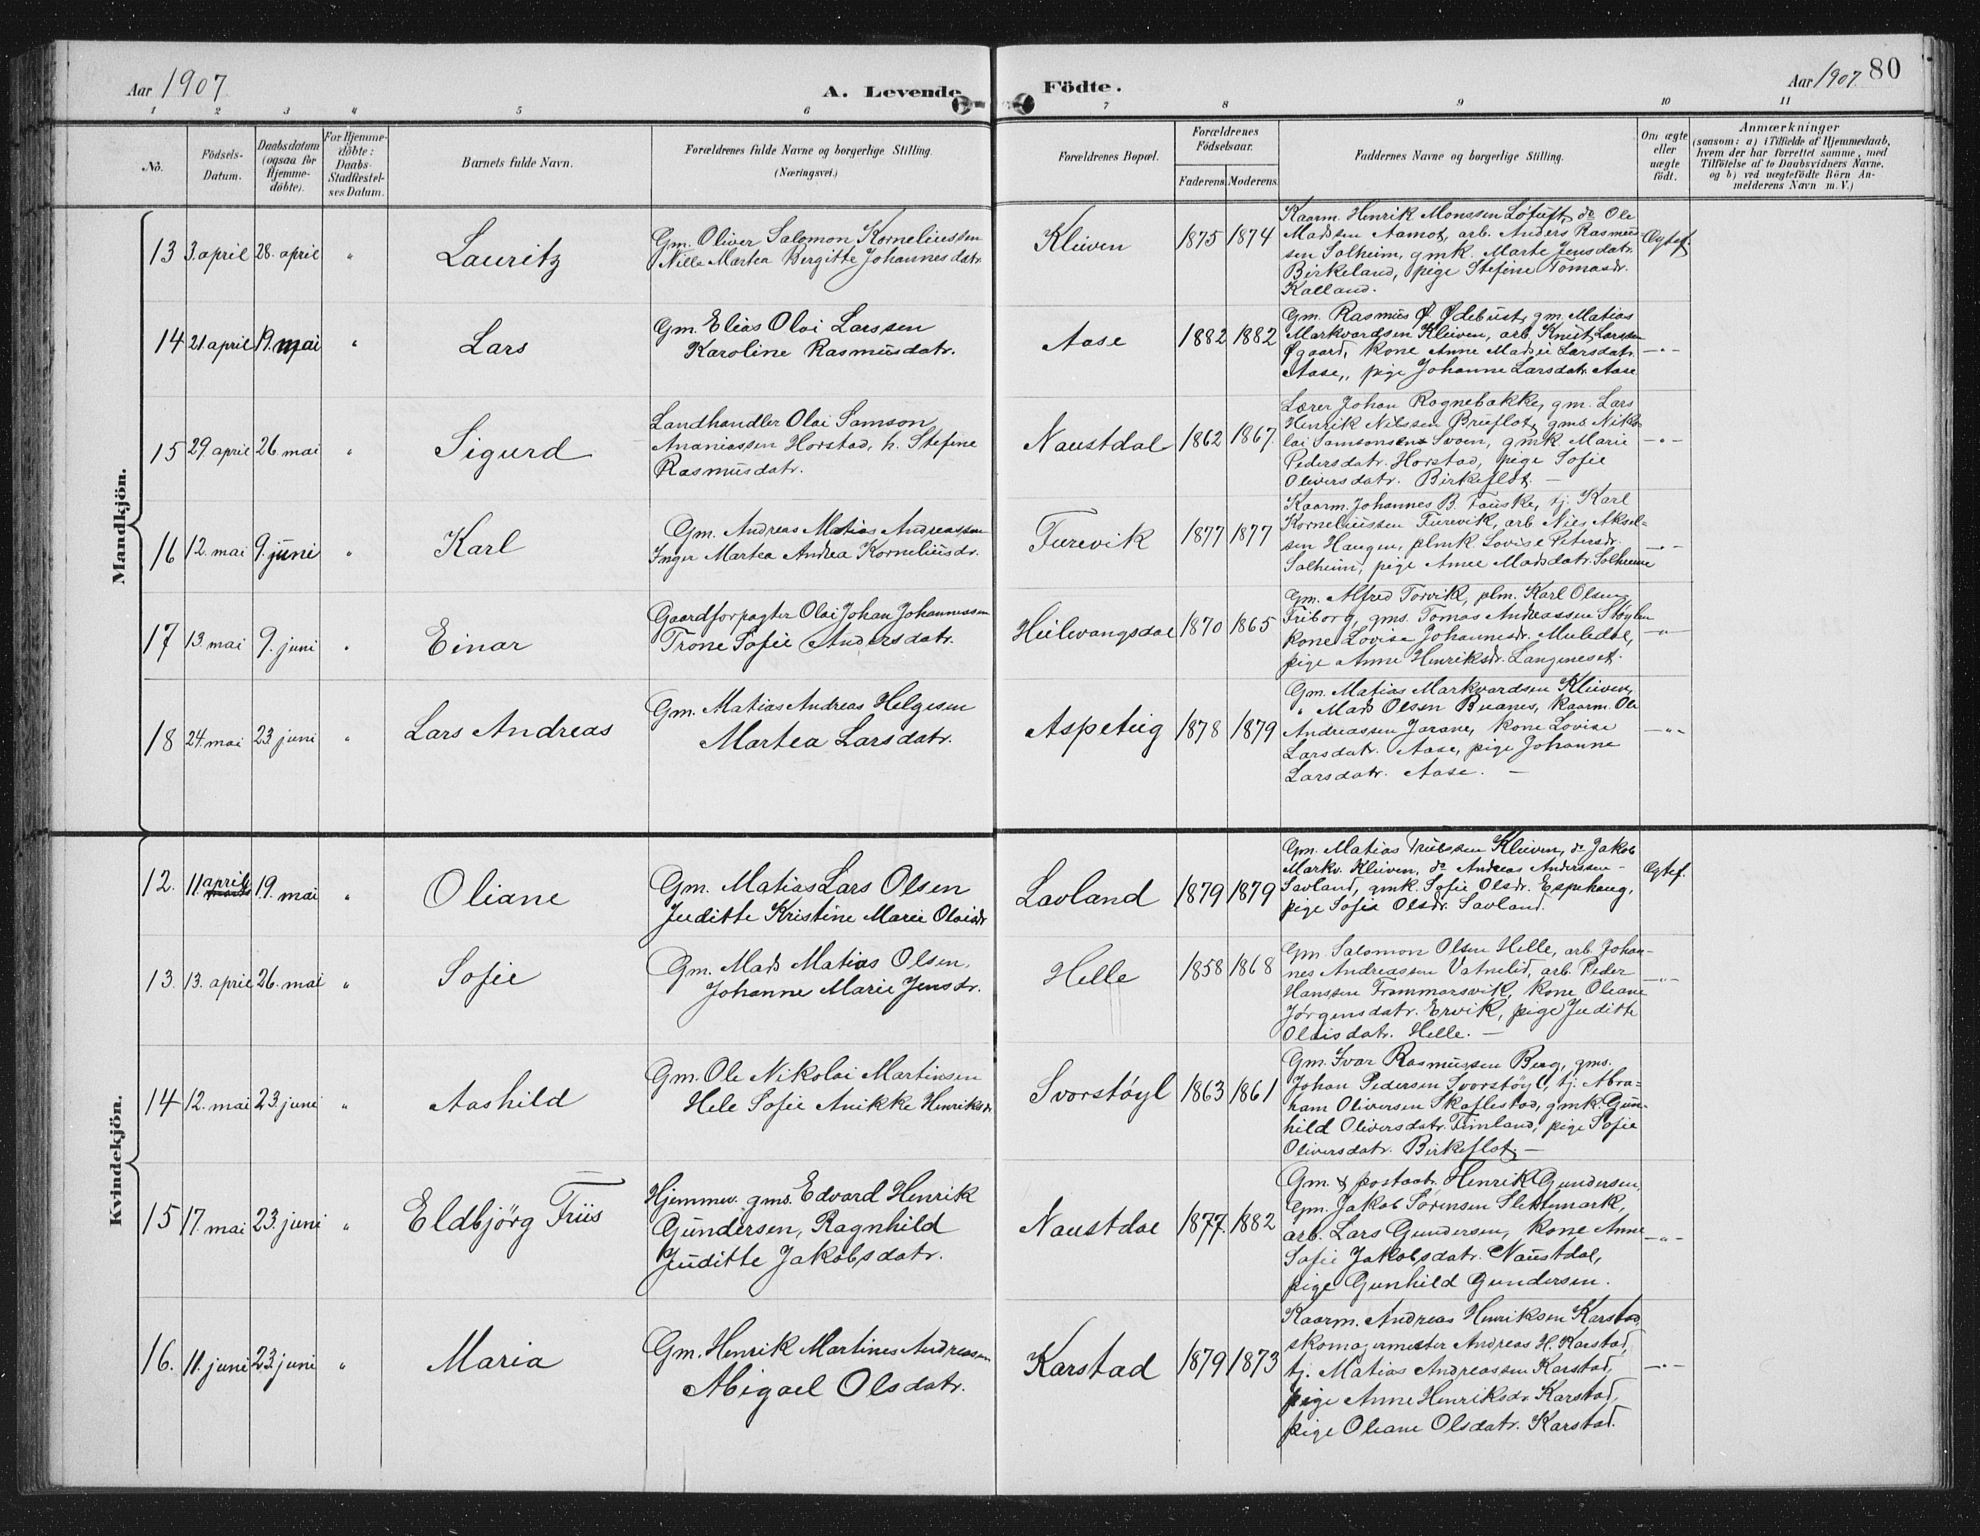 Aar 1907
A. Levende Födte.
Aar 1907. 80
1 2 3 4 5 6 7 8 9 10 11
No.
Födsels-
Datum.
Daabsdatum
(ogsaa for
Hjemme-
döbte).
For Hjemme-
döbte:
Daabs-
Stadfæstel-
ses Datum.
Barnets fulde Navn.
Forældrenes fulde Navne og borgerlige Stilling.
(Næringsvei.)
Forældrenes Bopæl.
Forældrenes
Födselsaar.
Faderens. Moderens.
Faddernes Navne og borgerlige Stilling.
Om ægte
eller
uægte
födt.
Anmærkninger
(saasom: a) i Tilfælde af Hjemmedaab,
hvem der har forrettet samme, med
Tilföielse af to Daabsvidners Navne,
og b) ved uægtefödte Börn An-
melderens Navn m. V.)
Mandkjön.
13 3. april 28. april " Lauritz
Gm. Oliver Salomon Korneliussen
Nille Martea Bergitte Johannesdatr.
Kleiven 1875 1874
Kaarm. Henrik Monssen Løtuft, do Ole
Madssen Aamot, arb. Anders Rasmus-
sen Solheim, gmk. Marte Jensdatr.
Birkeland, pige Stefine Tomasdr.
Kalland.
Ægtef.
14 21. april 19. mai " Lars
Gm. Elias Olai Larssen
Karoline Rasmusdatr.
Aase 1882 1882
Gm. Rasmus Ø. Ødebust, gm. Matias
Markvardsen Kleiven, arb. Knut Larssen
Øgaard, kone Anne Madsie Larsdatr.
Aase, pige Johanne Larsdatr. Aase
—"—
15 29. april 26. mai " Sigurd
Landhandler Olai Samson
Ananiassen Horstad, h. Stefine
Rasmusdatr.
Naustdal 1862 1867.
Lærer Johan Rognebakke, gm. Lars
Henrik Nilssen Bruflot, gms. Niko-
lai Samsonsen Svoen, gmk. Marie
Pedersdatr. Horstad, pige Sofie
Oliversdatr. Birkeflot. —
—"—
16 12. mai 9. juni " Karl
Gm. Andreas Matias Andreassen
Inger Martea Andrea Korneliusdr.
Furevik 1877 1877
Kaarm. Johannes B. Fauske, tj. Karl
Korneliussen Furevik, arb. Nies Aksel-
sen Haugen, plmk. Lovise Petersdr.
Solheim, pige Anne Madsdatr. Solheim
—"—
17 13. mai 9. juni " Einar
Gaardforpagter Olai Johan Johannessen
Trone Sofie Andersdatr.
Heilevangsdal 1870 1865
Gm. Alfred Torvik, plm. Karl Olsen
Friborg, gms. Tomas Andreassen Støylen
kone Lovise Johannesdr. Muledal,
pige Anne Henriksdr. Langeneset.
—"—
18 24. mai 23 juni " Lars Andreas
Gm. Matias Andreas Helgesen
Martea Larsdatr.
Aspeteig 1878 1879
Gm. Matias Markvardsen Kleiven,
" Mads Olsen Buanes, kaarm. Ole
Andreassen Jarane, kone Lovise
Larsdatr. Aase, pige Johanne
Larsdatr. Aase. —
—"—
Kvindekjön.
12. 11. april 19. mai " Oliane
Gm. Matias Lars Olsen
Juditte Kristine Marie Olaisdr
Lavland 1879 1879
Gm. Matias Trulssen Kleiven, do Jakob
Markv. Kleiven, do Andreas Anderssen
Savland, gmk. Sofie Olsdr. Espehaug,
pige Sofie Olsdr. Savland.
Ægtef.
13. 13. april 26. mai " Sofie
Gm. Mads Matias Olsen.
Johanne Marie Jensdr.
Helle 1858 1868
Gm. Salomon Olsen Helle, arb. Johan-
nes Andreassen Vatnelid, arb. Peder
Hanssen Frammarsvik, kone Oleane
Jørgensdatr. Ervik, pige Juditte
Olaisdatr. Helle. —
—"—
14 12. mai 23. juni " Aashild
Gm. Ole Nikolai Martinsen
Hele Sofie Anikke Henriksdr.
Svorstøyl 1863 1861
Gm. Ivar Rasmussen Berg, gms.
Johan Pedersen Svorstøyl, tj. Abra-
ham Oliversen Skaflestad, gmk. Gun-
hild Oliversdatr. Fimland, pige Sofie
Oliversdatr. Birkeflot —
15 17. mai 23. juni " Eldbjörg Friis
Hjemmev. gms. Edvard Henrik
Gundersen, Ragnhild
Juditte Jakobsdatr.
Naustdal 1877. 1882
Gm. & postaatr. Henrik Gundersen,
Gm. Jakob Sørensen Slettemark,
arb. Lars Gundersen, kone Anne
Sofie Jakobsdatr. Naustdal,
pige Gunhild Gundersen.
—"—
16. 11. juni 23. juni " Maria
Gm. Henrik Martines Andreassen
Abigael Olsdatr.
Karstad 1879 1873
Kaarm. Andreas Henriksen Karstad
skomagermester Andreas H. Karstad,
tj. Matias Andreassen Karstad,
pige Anne Henriksdr Karstad,
pige Oleane Olsdatr. Karstad.
—"—